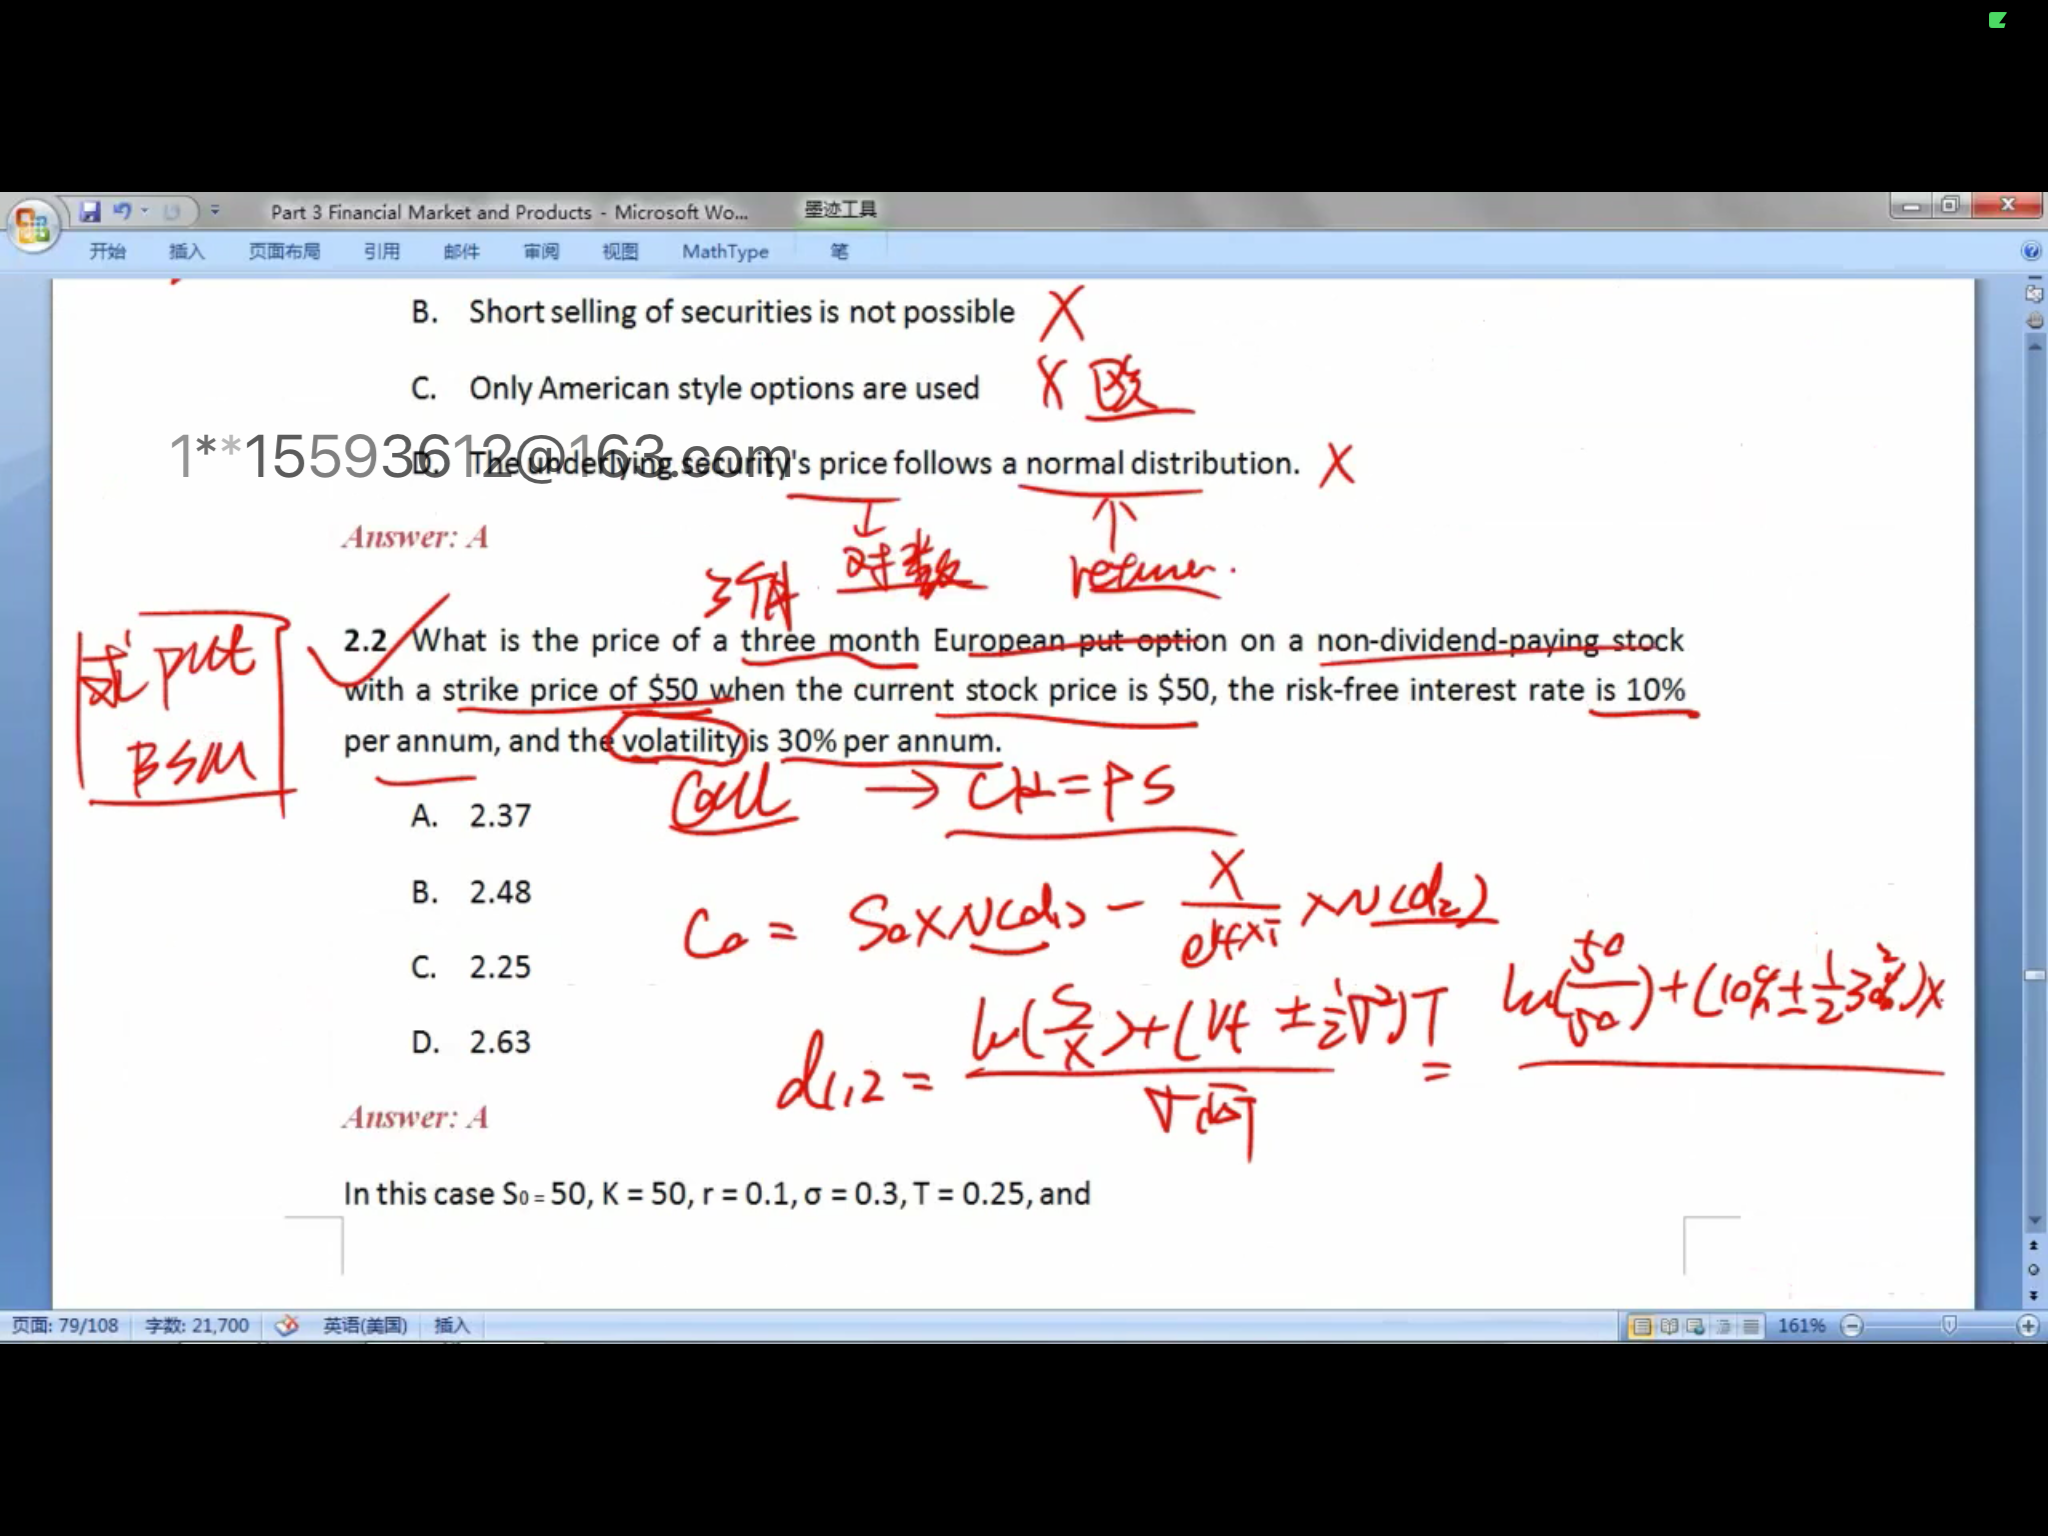 Part 3 Financial Market and Products - Microsoft Wo...
墨迹工具
开始 插入 页面布局 引用 邮件 审阅 视图 MathType 笔
B. Short selling of securities is not possible X
C. Only American style options are used X 欧
1**15593612@163.com
D. The underlying security's price follows a normal distribution. X
Answer: A
对数
求 put
BSM
2.2 What is the price of a three month European put option on a non-dividend-paying stock
with a strike price of $50 when the current stock price is $50, the risk-free interest rate is 10%
per annum, and the volatility is 30% per annum.
Call → C+K=PS
A. 2.37
B. 2.48
C. 2.25
D. 2.63
C₀ = S₀×N(d₁) - X/e^(rf×T) ×N(d₂)
d₁,₂ = ln(S/X)+(rf ± ½σ²)T / σ√T = ln(50/50)+(10%±½30%²)×
Answer: A
In this case S₀ = 50, K = 50, r = 0.1, σ = 0.3, T = 0.25, and
页面: 79/108 字数: 21,700 英语(美国) 插入 161%